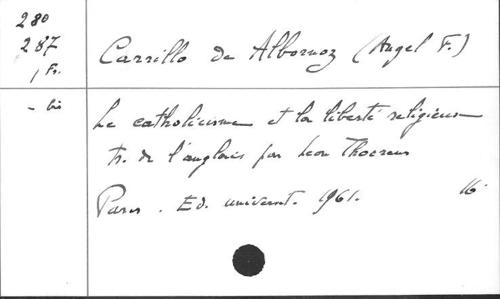 280
287
1 Fr.
- bis
Carrillo de Albornoz (Angel F.)
Le catholicisme et la liberté religieuse
tr. de l'anglais par Leon Thoorens
Paris. Ed. universit. 1961. 16°